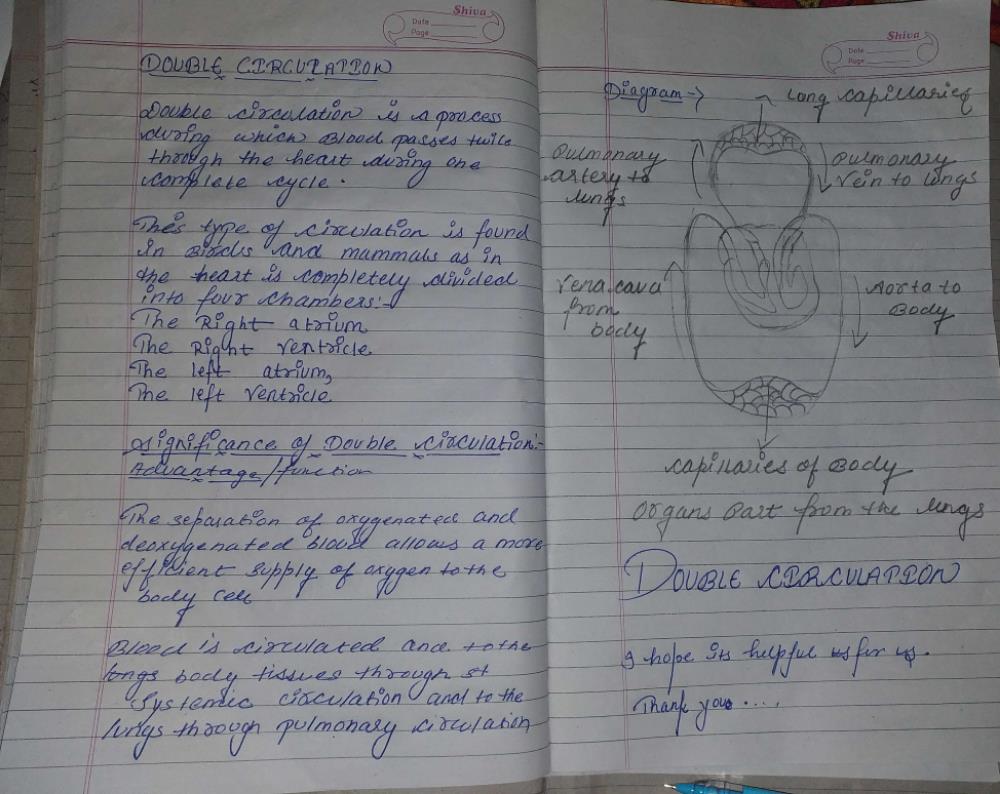 Shiva
Date
Page
DOUBLE CIRCULATION
Double circulation is a process
during which Blood passes twice
through the heart during one
complete cycle.
This type of circulation is found
in Birds and mammals as in
the heart is completely divided
into four chambers:-
The Right atrium
The Right ventricle
The left atrium,
The left ventricle
Significance of Double circulation:-
Advantage/function
The separation of oxygenated and
deoxygenated Blood allows a more
efficient supply of oxygen to the
body cell
Blood is circulated and to the
body tissues through
systemic circulation and to the
lungs through pulmonary circulation
Shiva
Date
Page
Diagram->
Long capillaries
Pulmonary
artery to
lungs
Pulmonary
Vein to lungs
Vena cava
from
body
Aorta to
Body
capillaries of Body
organs Part from the lungs
DOUBLE CIRCULATION
I hope its helpful for us.
Thank you....